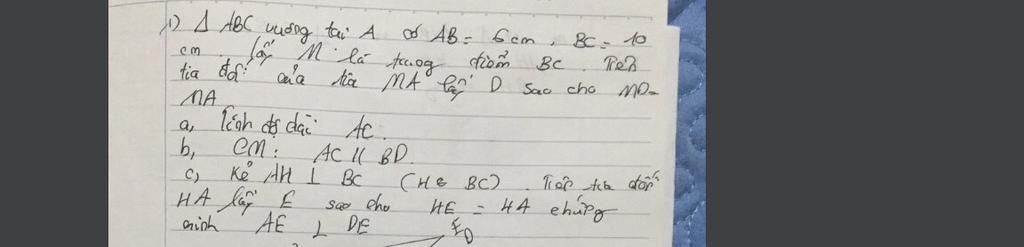 1) Δ ABC vuông tại A có AB = 6 cm, BC = 10
cm. lấy M là trung điểm BC. Trên
tia đối của tia MA lấy D sao cho MD =
MA
a, Tính độ dài AC.
b, CM: AC // BD.
c, Kẻ AH ⊥ BC (H ∈ BC). Trên tia đối
HA lấy E sao cho HE = HA chứng
minh AE ⊥ DE